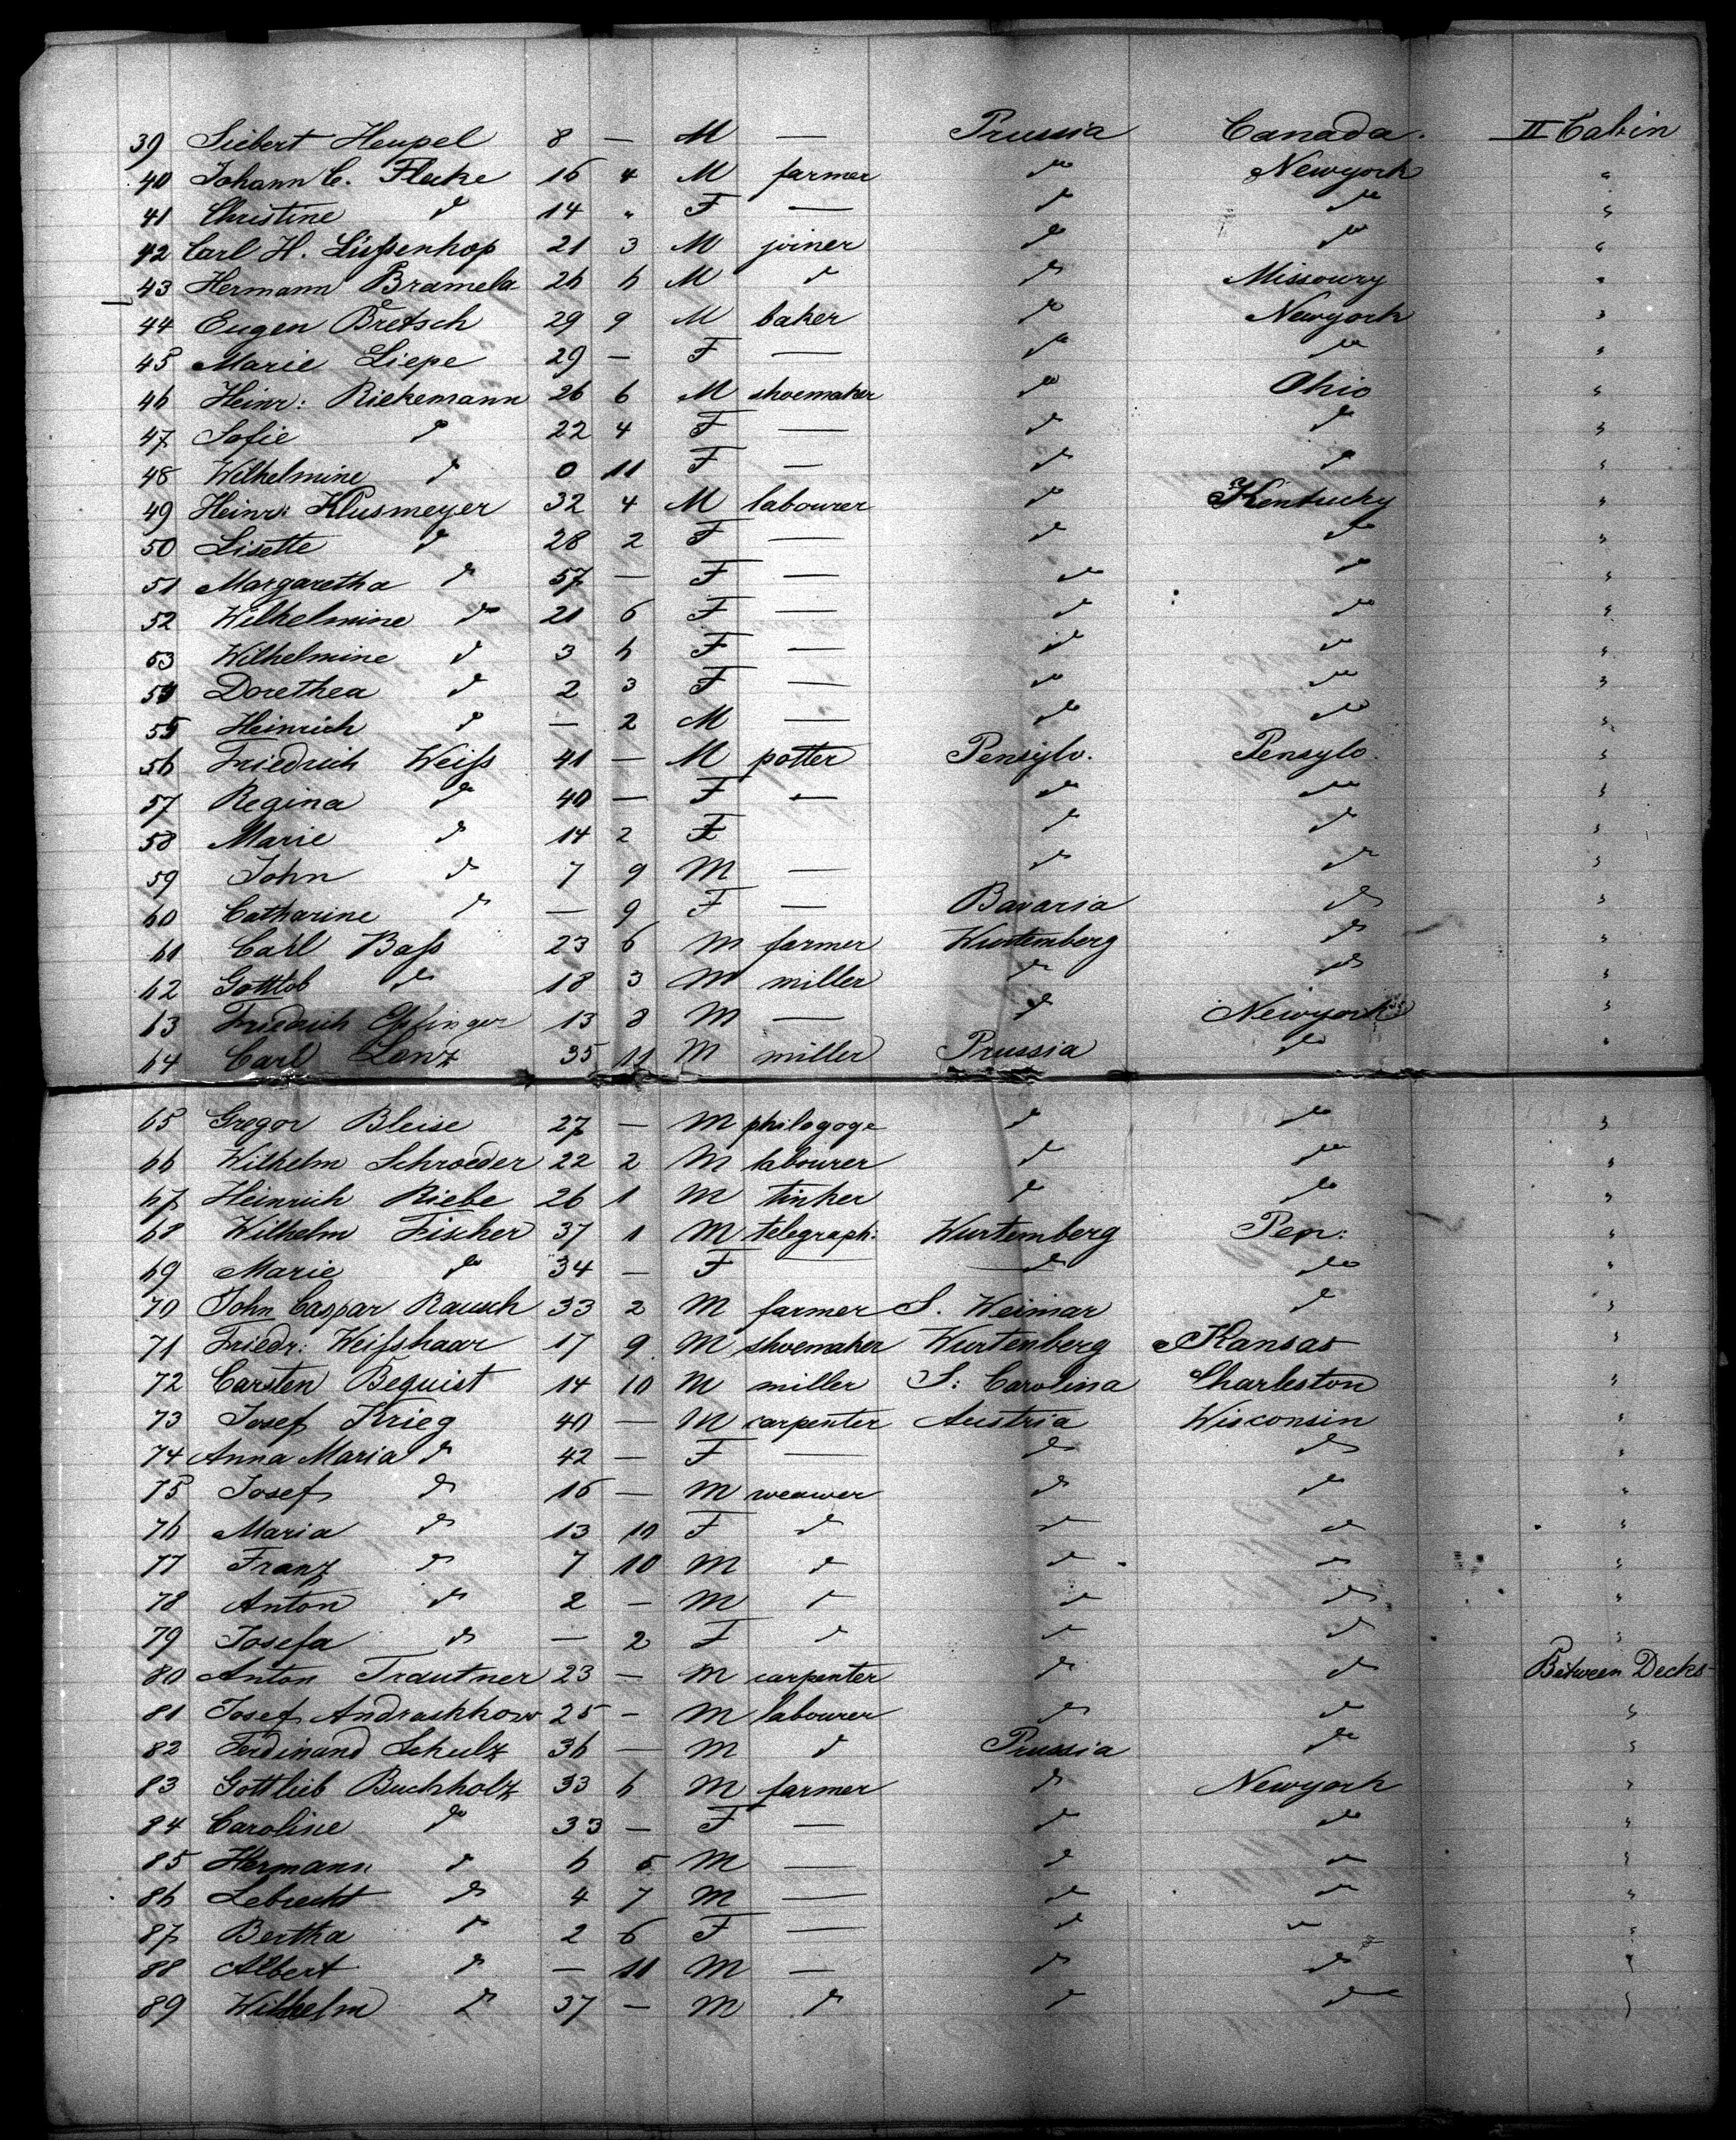 39 Siebert Heupel 8 — M — Prussia Canada. II Cabin
40 Johann C. Flecke 16 4 M farmer do Newyork "
41 Christine do 14 " F — do do "
42 Carl H. Lißenhop 21 3 M joiner do do "
43 Hermann Bramela 26 6 M do do Missoury "
44 Eugen Bretsch 29 9 M baker do Newyork "
45 Marie Liepe 29 — F — do do "
46 Heinr: Riekemann 26 6 M shoemaker do Ohio "
47 Sofie do 22 4 F — do do "
48 Wilhelmine do 0 11 F — do do "
49 Heinr: Klusmeyer 32 4 M labourer do Kentucky "
50 Lisette do 28 2 F — do do "
51 Margaretha do 57 — F — do do "
52 Wilhelmine do 21 6 F — do do "
53 Wilhelmine do 3 6 F — do do "
54 Dorethea do 2 3 F — do do "
55 Heinrich do — 2 M — do do "
56 Friedrich Weiß 41 — M potter Pensylv. Pensylv. "
57 Regina do 40 — F — do do "
58 Marie do 14 2 F do do "
59 John do 7 9 M — do do "
60 Catharine do — 9 F — Bavaria do "
61 Carl Baß 23 6 M farmer Wurtemberg do "
62 Gottlob do 18 3 M miller do do "
63 Friedrich 13 8 M — do Newyork "
64 Carl Lenz 35 11 M miller Prussia do "
65 Gregor Bleise 27 — M philogoge do do "
66 Wilhelm Schroeder 22 2 M labourer do do "
67 Heinrich Riebe 26 1 M tinker do do "
68 Wilhelm Fischer 37 1 M telegraph: Wurtemberg Pen: "
69 Marie do 34 — F — do do "
70 John Caspar Rausch 33 2 M farmer S. Weimar do "
71 Friedr: Weißhaar 17 9 M shoemaker Wurtenberg Kansas "
72 Carsten Bequist 14 10 M miller S: Carolina Charleston "
73 Josef Krieg 40 — M carpenter Austria Wisconsin "
74 Anna Maria do 42 — F — do do "
75 Josef do 16 — M weawer do do "
76 Maria do 13 10 F do do do "
77 Franz do 7 10 M do do do "
78 Anton do 2 — M do do do "
79 Josefa do — 2 F do do do "
80 Anton Trautner 23 — M carpenter do do Between Decks
81 Josef Andraskkow 25 — M labourer do do "
82 Ferdinand Schulz 36 — M do Prussia do "
83 Gottlieb Buchholz 33 6 M farmer do Newyork "
84 Caroline do 33 — F — do do "
85 Hermann do 6 5 M — do do "
86 Lebrecht do 4 7 M — do do "
87 Bertha do 2 6 F — do do "
88 Albert do — 11 M — do do "
89 Wilhelm do 37 — M do do do "